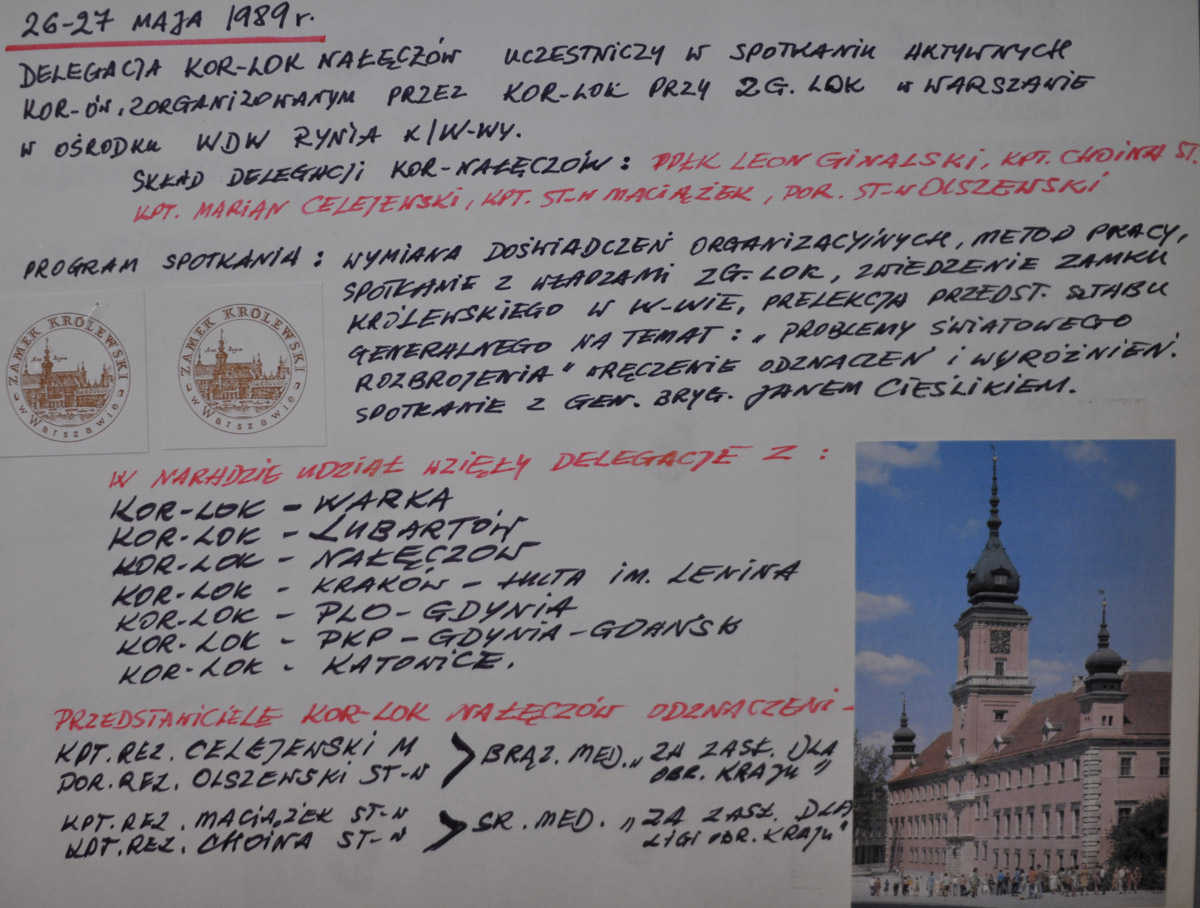 26-27 MAJA 1989 r.
DELEGACJA KOR-LOK NAŁĘCZÓW UCZESTNICZY W SPOTKANIU AKTYWNYCH
KOR-ÓW, ZORGANIZOWANYM PRZEZ KOR-LOK PRZY ZG. LOK W WARSZAWIE
W OŚRODKU WDW RYNIA K/W-WY.
SKŁAD DELEGACJI KOR-NAŁĘCZÓW: PPŁK LEON GINALSKI, KPT. CHOINA ST.
KPT. MARIAN CELEJEWSKI, KPT. ST-W MACIĄŻEK, POR. ST-W OLSZEWSKI
PROGRAM SPOTKANIA: WYMIANA DOŚWIADCZEŃ ORGANIZACYJNYCH, METOD PRACY,
SPOTKANIE Z WŁADZAMI ZG. LOK, ZWIEDZENIE ZAMKU
KRÓLEWSKIEGO W W-WIE, PRELEKCJA PRZEDST. SZTABU
GENERALNEGO NA TEMAT: „PROBLEMY ŚWIATOWEGO
ROZBROJENIA" WRĘCZENIE ODZNACZEŃ I WYRÓŻNIEŃ.
SPOTKANIE Z GEN. BRYG. JANEM CIEŚLIKIEM.
ZAMEK KRÓLEWSKI
w Warszawie
ZAMEK KRÓLEWSKI
w Warszawie
W NARADZIE UDZIAŁ WZIĘŁY DELEGACJE Z:
KOR-LOK - WARKA
KOR-LOK - LUBARTÓW
KOR-LOK - NAŁĘCZÓW
KOR-LOK - KRAKÓW - HUTA IM. LENINA
KOR-LOK - PLO-GDYNIA
KOR-LOK - PKP-GDYNIA-GDAŃSK
KOR-LOK - KATOWICE.
PRZEDSTAWICIELE KOR-LOK NAŁĘCZÓW ODZNACZENI -
KPT. REZ. CELEJEWSKI M > BRĄZ. MED. „ZA ZASŁ. DLA
POR. REZ. OLSZEWSKI ST-W OBR. KRAJU"
KPT. REZ. MACIĄŻEK ST-W > SR. MED. „ZA ZASŁ. DLA
KPT. REZ. CHOINA ST-W LIGI OBR. KRAJU"